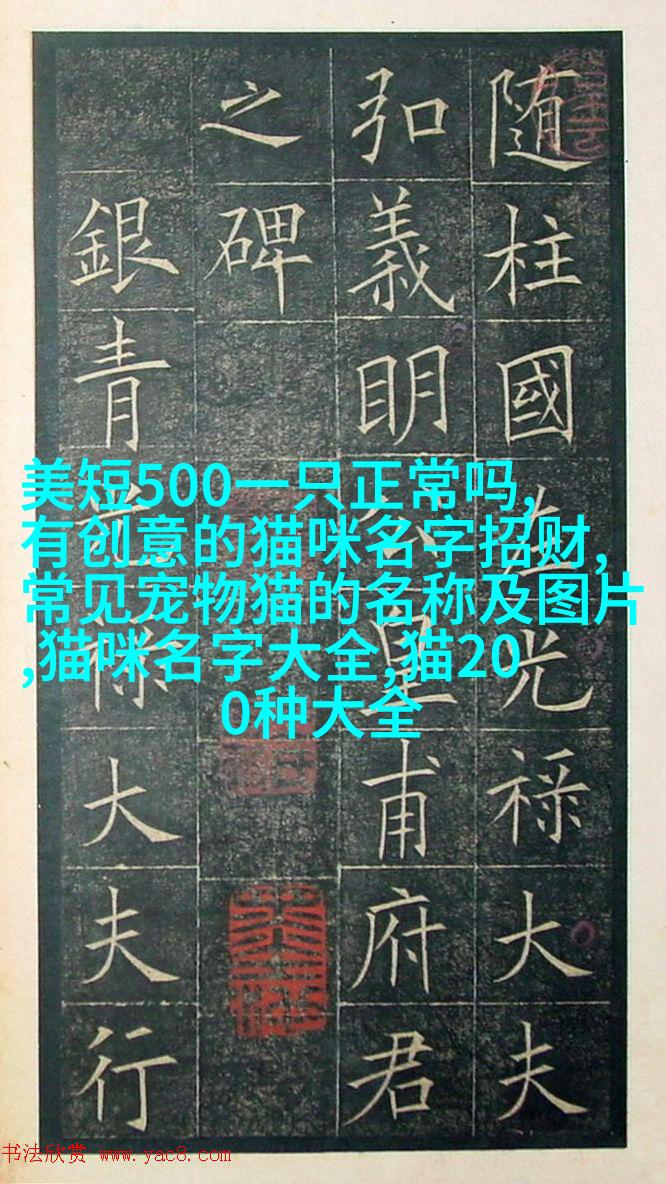 随柱國左光禄大夫
弘義明公皇甫府君
之碑
銀青光禄大夫行
美短500一只正常吗,
有创意的猫咪名字招财,
常见宠物猫的名称及图片
,猫咪名字大全,猫20
0种大全
书法欣赏 www.yac8.com